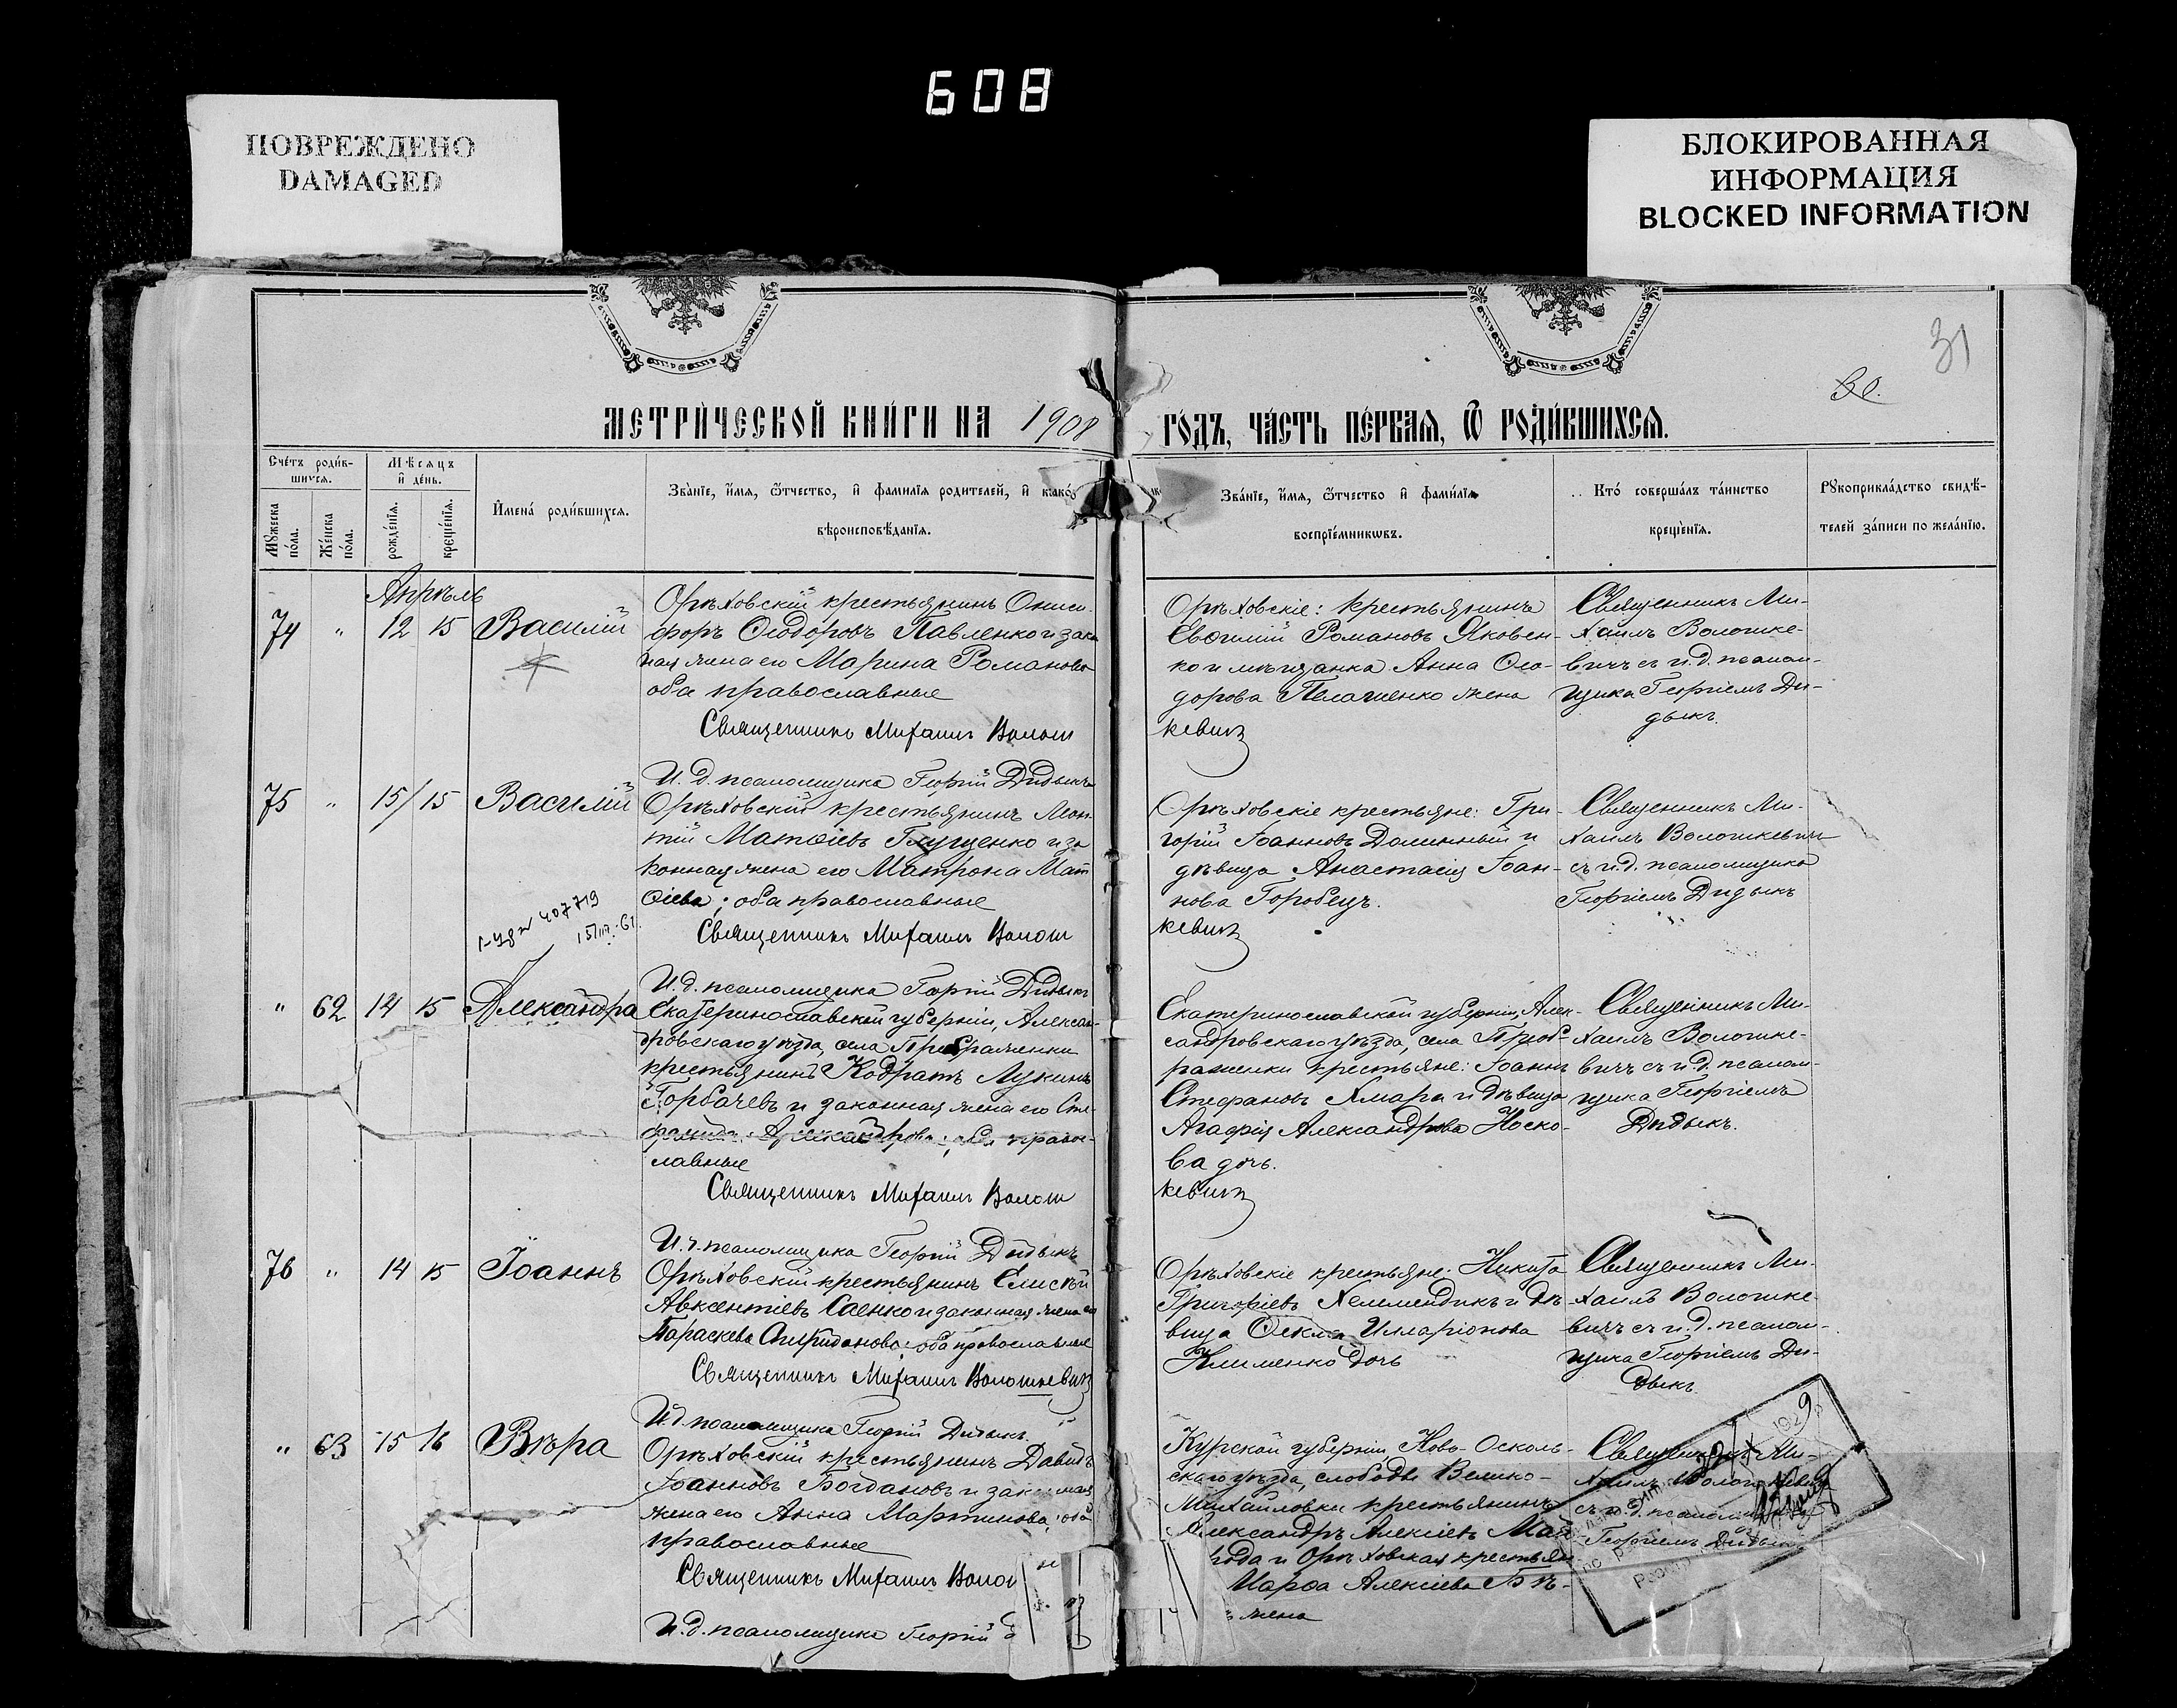 608
ПОВРЕЖДЕНО
DAMAGED
БЛОКИРОВАННАЯ
ИНФОРМАЦИЯ
BLOCKED INFORMATION
31
30.
МЕТРИ́ЧЕСКОЙ КНИ́ГИ НА 1908 ГО́ДЪ, ЧА́СТЬ ПЕ́РВАЯ, Ѿ РОДИ́ВШИХСЯ.
Сче́тъ роди́в-
шихся.
Мꙋжеска по́ла.
Же́нска по́ла.
Мѣсяцъ и де́нь.
рожде́нїя.
креще́нїя.
И҆мена̀ роди́вшихся.
Зва́нїе, и҆́мя, ѻ҆́тчество, и҆ фамилїя родителей, и҆ како́гѡ
вѣроисповѣ́данїя.
Зва́нїе, и҆́мя, ѻ҆́тчество и҆ фами́лїя
воспрїе́мникѡвъ.
Кто́ соверша́лъ та́инство
креще́нїя.
Рꙋкоприкла́дство свидѣ́-
телей за́писи по жела́нїю.
Апрѣль
74 " 12 15 Василій
Орѣховскій крестьянинъ Ониси-
форъ Ѳеодоровъ Павленко и зако
ная жена его Марина Романова
оба православные
Священникъ Михаилъ Волош
кевичъ
Орѣховскіе: крестьянинъ
Евѳимій Романовъ Яковен-
ко и мѣщанка Анна Ѳео-
дорова жена
Священникъ Ми-
хаилъ Волошке-
вичъ съ и.д. псалом-
щика Георгіемъ Ди-
дыкъ.
И.д. псаломщика Георгій Дидыкъ
75 " 15/15 Василій
Орѣховскій крестьянинъ Леон-
тій Матѳіевъ Глущенко и за
конная жена его Матрона Мат
ѳіева; оба православные
Священникъ Михаилъ Волош
кевичъ
Орѣховскіе крестьяне: Гри-
горій Іоанновъ Долинный и
дѣвица Анастасія Іоан-
нова Горобецъ.
Священникъ Ми-
хаилъ Волошкевичъ
съ и.д. псаломщика
Георгіемъ Дидыкъ
407719
15/III. 61.
И.д. псаломщика Георгій Дидыкъ
" 62 14 15 Александра
Екатеринославской губерніи, Алексан-
дровскаго уѣзда, села Преображенки
крестьянинъ Кодратъ Лукинъ
Горбачевъ и законная жена его Сте-
фанида Александрова; оба право-
славные
Священникъ Михаилъ Волош
кевичъ
Екатеринославской губерніи, Алек-
сандровскаго уѣзда, села Преоб-
раженки крестьяне: Іоаннъ
Стефановъ Хмара и дѣвица
Агафія Александрова Носко-
ва дочь.
Священникъ Ми-
хаилъ Волошке-
вичъ съ и.д. псалом-
щика Георгіемъ
Дидыкъ.
И.д. псаломщика Георгій Дидыкъ
76 " 14 15 Іоаннъ
Орѣховскій крестьянинъ Елисѣй
Авксентіевъ Саенко и законная жена его
Параскева Спиридонова; оба православные
Священникъ Михаилъ Волошкевичъ
Орѣховскіе крестьяне: Никита
Григоріевъ Хелемендикъ и дѣ-
вица Ѳекла Илларіонова
Клименко дочь
Священникъ Ми-
хаилъ Волошке-
вичъ съ и.д. псалом-
щика Георгіемъ Ди-
дыкъ.
И.д. псаломщика Георгій Дидыкъ
" 63 15 16 Вѣра
Орѣховскій крестьянинъ Давидъ
Іоанновъ Богдановъ и законная
жена его Анна Мартинова; оба
православные
Священникъ Михаилъ Волош
И.д. псаломщика Георгій
Курской губерніи Ново-Осколь-
скаго уѣзда, слободы Велико-
Михайловки крестьянинъ
Александръ Алексіевъ
и Орѣховская крестьян
Марѳа Алексіева
жена
Священникъ Ми-
хаилъ Волошкевичъ
съ и.д. псаломщика
Георгіемъ Дидыкъ